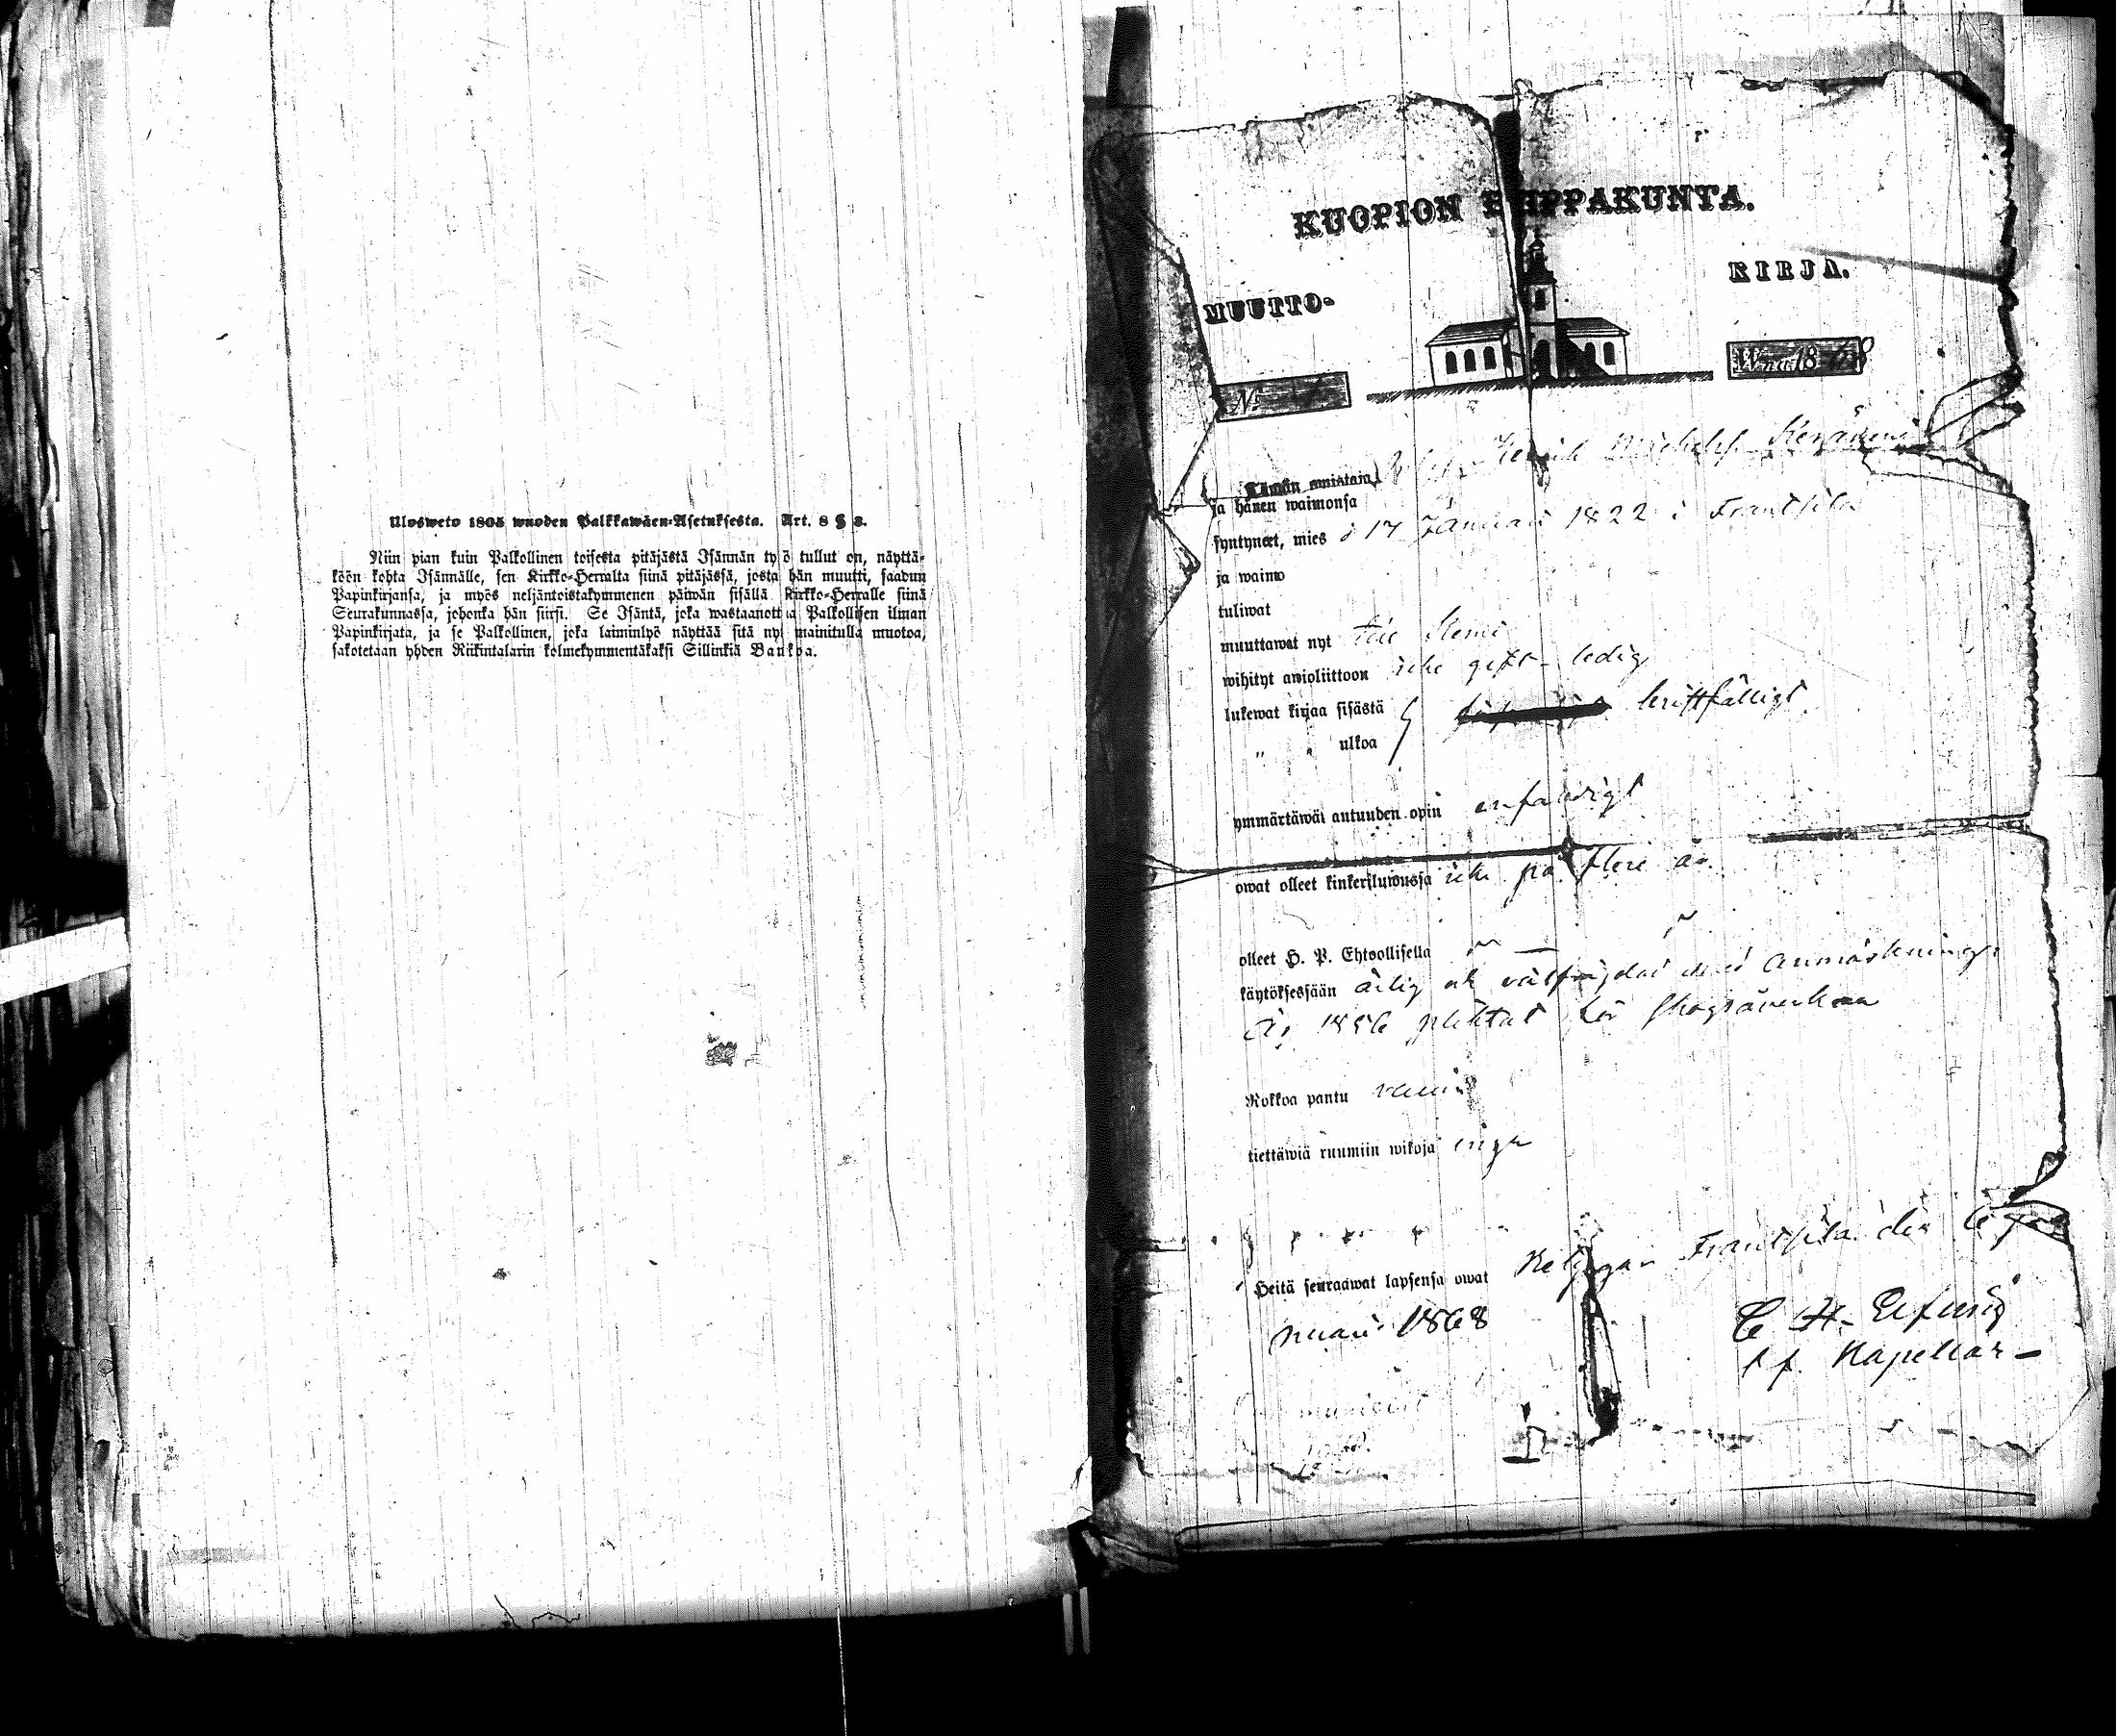 Ulosweto 1805 wuoden Palkkawäen-Asetuksesta. Art. 8 § 3.
Niin pian kuin Palkollinen toisesta pitäjästä Isännän työ tullut on, näyttä-
köön kohta Isännälle, sen Kirkko-Herralta siinä pitäjässä, josta hän muutti, saadun
Papinkirjansa, ja myös neljäntoistakymmenen päiwän sisällä Kirkko-Herralle siinä
Seurakunnassa, johonka hän siirsi. Se Isäntä, joka wastaanottaa Palkollisen ilman
Papinkirjata, ja se Palkollinen, joka laiminlyö näyttää sitä nyt mainitulla muotoa,
sakotetaan yhden Riikintalarin kolmekymmentäkaksi Sillinkiä Bankoa.
KUOPION HIPPAKUNTA.
MUUTTO- KIRJA.
No Wna 1868
Tämän omistaja Henrik Michelss. Keränen
ja hänen waimonsa
syntyneet, mies d 17 Januari 1822 i Frantsila
ja waimo
tuliwat
muuttawat nyt till Kemi
wihityt awioliittoon icke gift - ledig
lukewat kirjaa sisästä bristfälligt
" " ulkoa
ymmärtäwäi autuuden opin enfaldigt
owat olleet kinkeriluwussa icke på flere år
olleet H. P. Ehtoollisella " — "
käytöksessään ärlig och med anmärkning
År 1856 pliktat för skogsåverkan
Rokkoa pantu
tiettäwiä ruumiin wikoja inga
Heitä seuraawat lapsensa owat Frantsila den
nuari 1868
C H
Kapellan